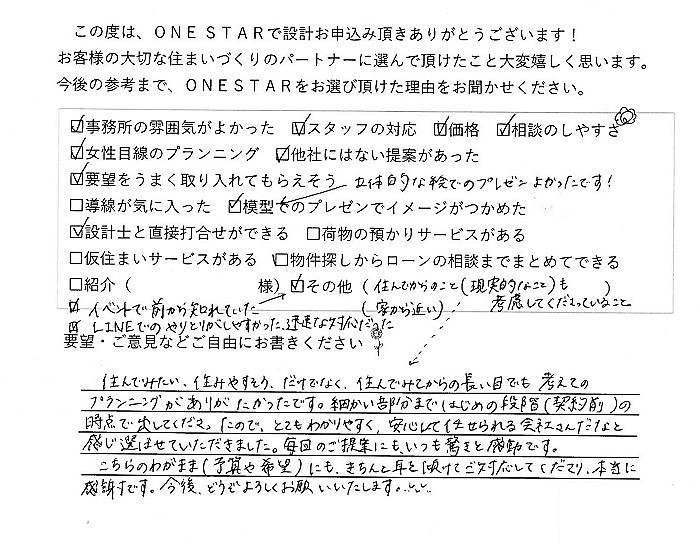 この度は、ＯＮＥ ＳＴＡＲで設計お申込み頂きありがとうございます！
お客様の大切な住まいづくりのパートナーに選んで頂けたこと大変嬉しく思います。
今後の参考まで、ＯＮＥＳＴＡＲをお選び頂けた理由をお聞かせください。
☑事務所の雰囲気がよかった ☑スタッフの対応 ☑価格 ☑相談のしやすさ
☑女性目線のプランニング ☑他社にはない提案があった
☑要望をうまく取り入れてもらえそう 立体的な絵でのプレゼンよかったです!
□導線が気に入った ☑模型でのプレゼンでイメージがつかめた
☑設計士と直接打合せができる □荷物の預かりサービスがある
□仮住まいサービスがある □物件探しからローンの相談までまとめてできる
□紹介（ 様）☑その他（住んでからのこと(現実的なこと)も ）
考慮してくださっていること
☑ イベントで前から知れていた (家から近い)
☑ LINEでのやりとりがしやすかった、迅速な対応だった
要望・ご意見などご自由にお書きください
住んでみたい、住みやすそう、だけでなく、住んでみてからの長い目でも 考えての
プランニングがありがたかったです。細かい部分まではじめの段階(契約前)の
時点で出してくださったので、とてもわかりやすく、安心して任せられる会社さんだなと
感じ選ばせていただきました。毎回のご提案にも、いつも驚きと感動です。
こちらのわがまま(予算や希望)にも、きちんと耳を傾けてご対応してくださり、本当に
感謝です。今後、どうぞよろしくお願いいたします。